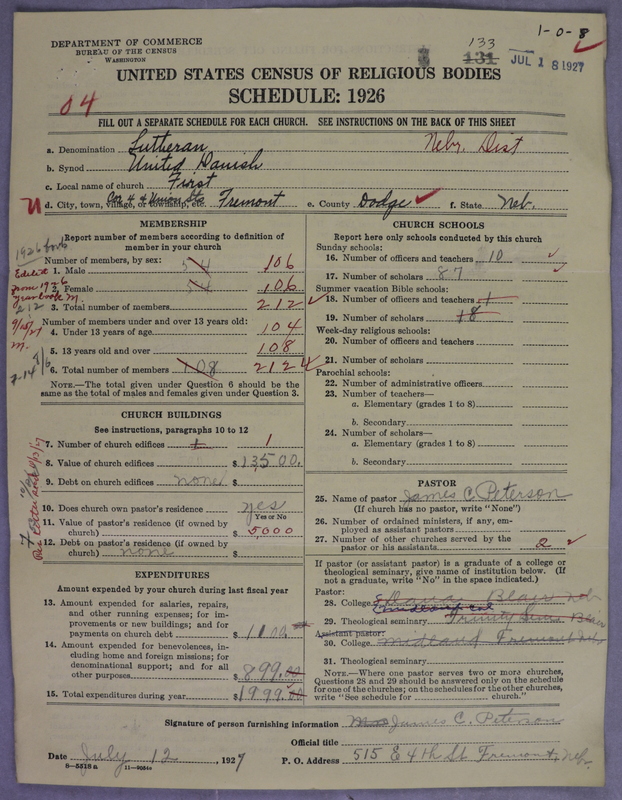 1-0-8
DEPARTMENT OF COMMERCE
BUREAU OF THE CENSUS
WASHINGTON
133
131
JUL 18 1927
UNITED STATES CENSUS OF RELIGIOUS BODIES
SCHEDULE: 1926
04
FILL OUT A SEPARATE SCHEDULE FOR EACH CHURCH. SEE INSTRUCTIONS ON THE BACK OF THIS SHEET
a. Denomination Lutheran Nebr. Dist
b. Synod United Danish
c. Local name of church First
d. City, town, village, or township, etc. Cor 4 & Union Sts Fremont e. County Dodge f. State Neb.
MEMBERSHIP
Report number of members according to definition of
member in your church
Number of members, by sex:
1. Male 54 106
2. Female 54 106
3. Total number of members 212
Number of members under and over 13 years old:
4. Under 13 years of age 104
5. 13 years old and over 108
6. Total number of members 108 212
NOTE.—The total given under Question 6 should be the
same as the total of males and females given under Question 3.
CHURCH BUILDINGS
See instructions, paragraphs 10 to 12
7. Number of church edifices 1 1
8. Value of church edifices $ 13,500.
9. Debt on church edifices none $
10. Does church own pastor's residence yes
Yes or No
11. Value of pastor's residence (if owned by
church) $ 5000
12. Debt on pastor's residence (if owned by
church) none $
EXPENDITURES
Amount expended by your church during last fiscal year
13. Amount expended for salaries, repairs,
and other running expenses; for im-
provements or new buildings; and for
payments on church debt $ 1100.
14. Amount expended for benevolences, in-
cluding home and foreign missions; for
denominational support; and for all
other purposes $ 899.00
15. Total expenditures during year $ 1999.00
CHURCH SCHOOLS
Report here only schools conducted by this church
Sunday schools:
16. Number of officers and teachers 10
17. Number of scholars 87
Summer vacation Bible schools:
18. Number of officers and teachers 1
19. Number of scholars 18
Week-day religious schools:
20. Number of officers and teachers
21. Number of scholars
Parochial schools:
22. Number of administrative officers
23. Number of teachers—
a. Elementary (grades 1 to 8)
b. Secondary
24. Number of scholars—
a. Elementary (grades 1 to 8)
b. Secondary
PASTOR
25. Name of pastor James C. Peterson
(If church has no pastor, write "None")
26. Number of ordained ministers, if any, em-
ployed as assistant pastors
27. Number of other churches served by the
pastor or his assistants 2
If pastor (or assistant pastor) is a graduate of a college or
theological seminary, give name of institution below. (If
not a graduate, write "No" in the space indicated.)
Pastor:
28. College Dana Blair Neb
29. Theological seminary Trinity Sem Blair
Assistant pastor:
30. College Midland Fremont Neb
31. Theological seminary
NOTE.—Where one pastor serves two or more churches,
Questions 28 and 29 should be answered only on the schedule
for one of the churches; on the schedules for the other churches,
write "See schedule for church."
Signature of person furnishing information James C. Peterson
Official title
Date July 12, 1927 P. O. Address 515 E 4th St Fremont, Neb.
8-5518a